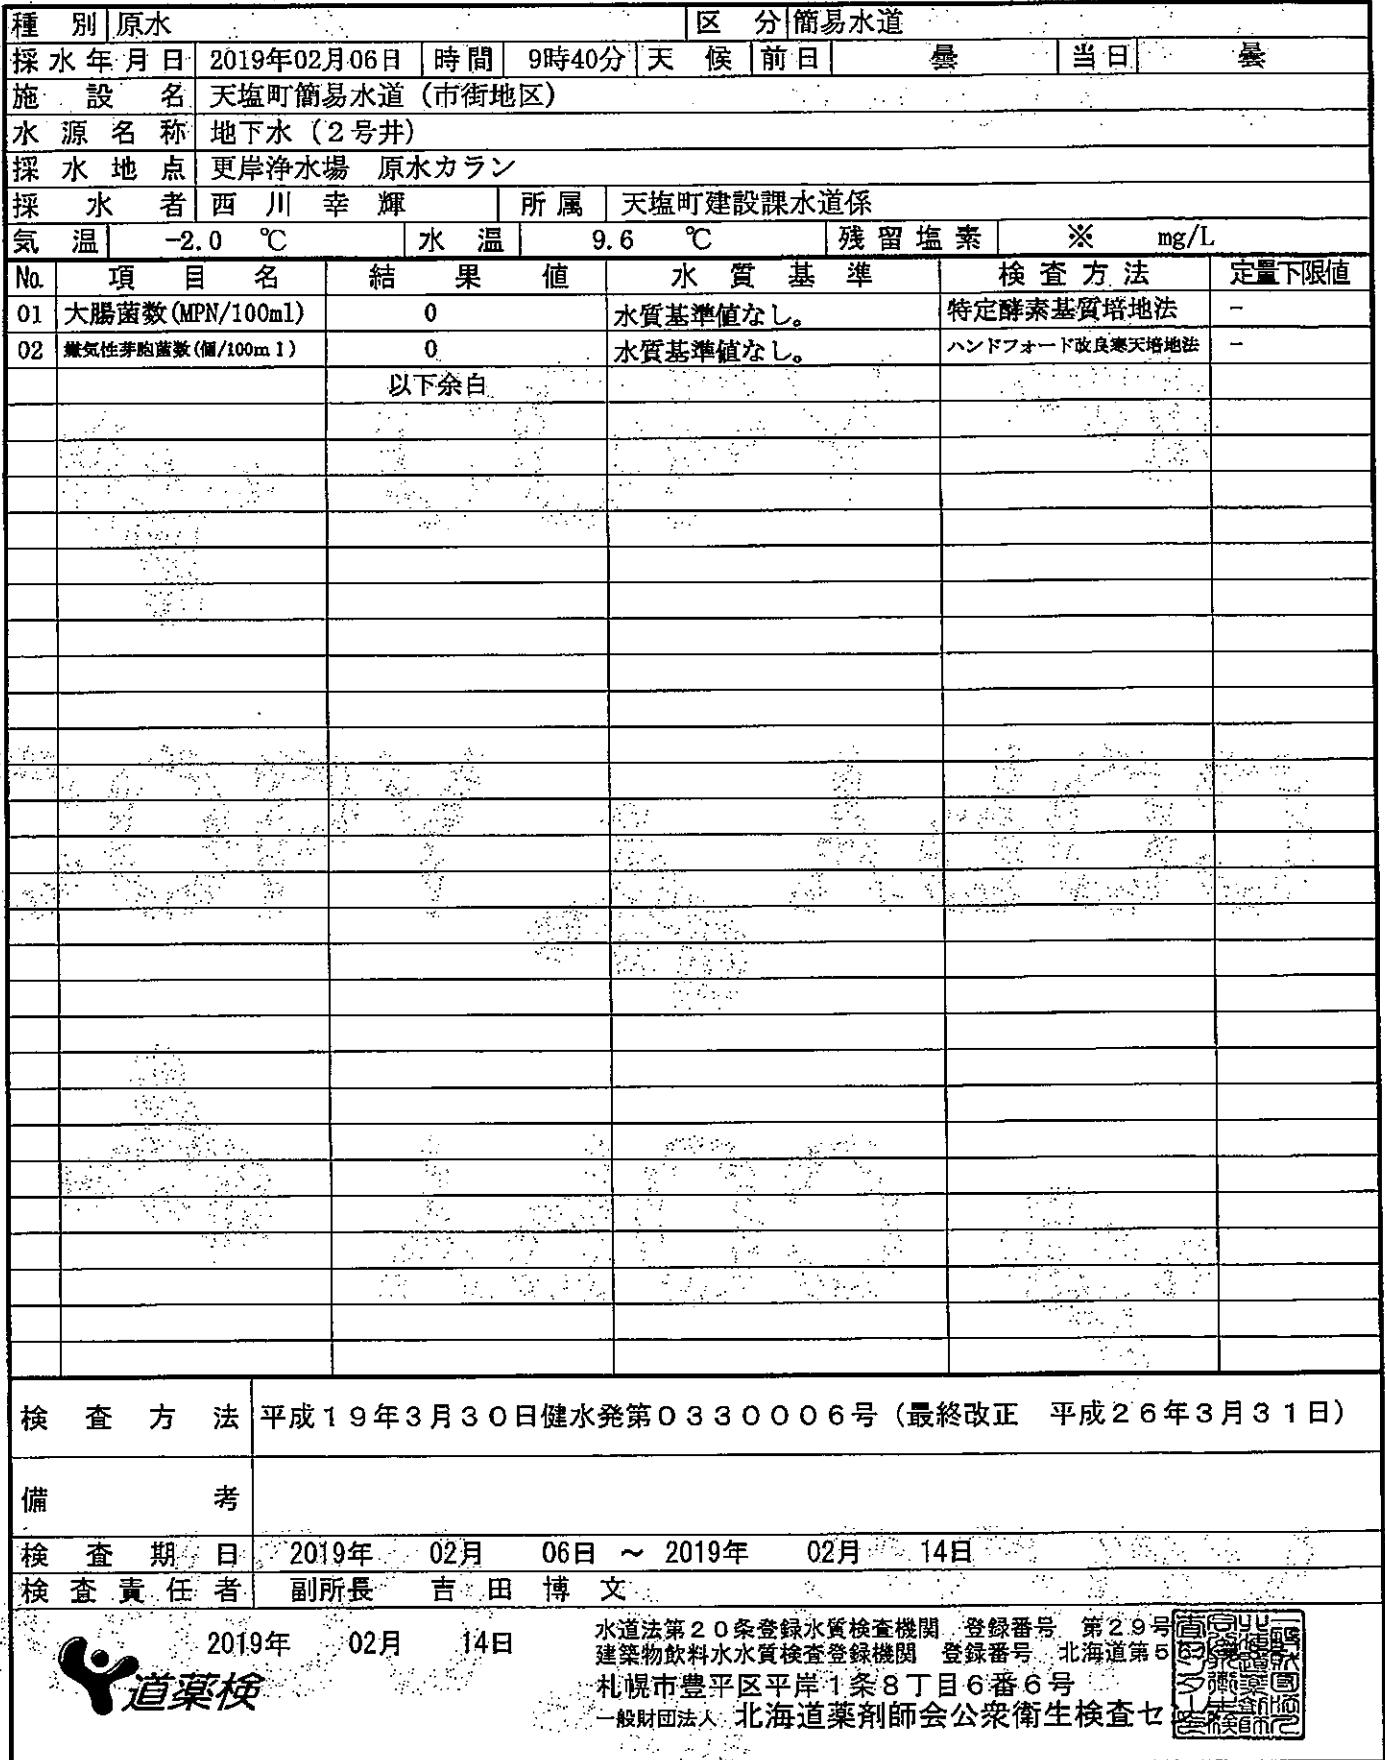 種別 原水 区分 簡易水道
採水年月日 2019年02月06日 時間 9時40分 天候 前日 曇 当日 曇
施設名 天塩町簡易水道（市街地区）
水源名称 地下水（2号井）
採水地点 更岸浄水場 原水カラン
採水者 西川幸輝 所属 天塩町建設課水道係
気温 -2.0 ℃ 水温 9.6 ℃ 残留塩素 ※ mg/L
No. 項目名 結果値 水質基準 検査方法 定量下限値
01 大腸菌数(MPN/100ml) 0 水質基準値なし。 特定酵素基質培地法 －
02 嫌気性芽胞菌数(個/100ml) 0 水質基準値なし。 ハンドフォード改良寒天培地法 －
以下余白
検査方法 平成19年3月30日健水発第0330006号（最終改正 平成26年3月31日）
備考
検査期日 2019年 02月 06日 ～ 2019年 02月 14日
検査責任者 副所長 吉田博文
2019年 02月 14日
道薬検
水道法第20条登録水質検査機関 登録番号 第29号
建築物飲料水水質検査登録機関 登録番号 北海道第5
札幌市豊平区平岸1条8丁目6番6号
一般財団法人 北海道薬剤師会公衆衛生検査セ